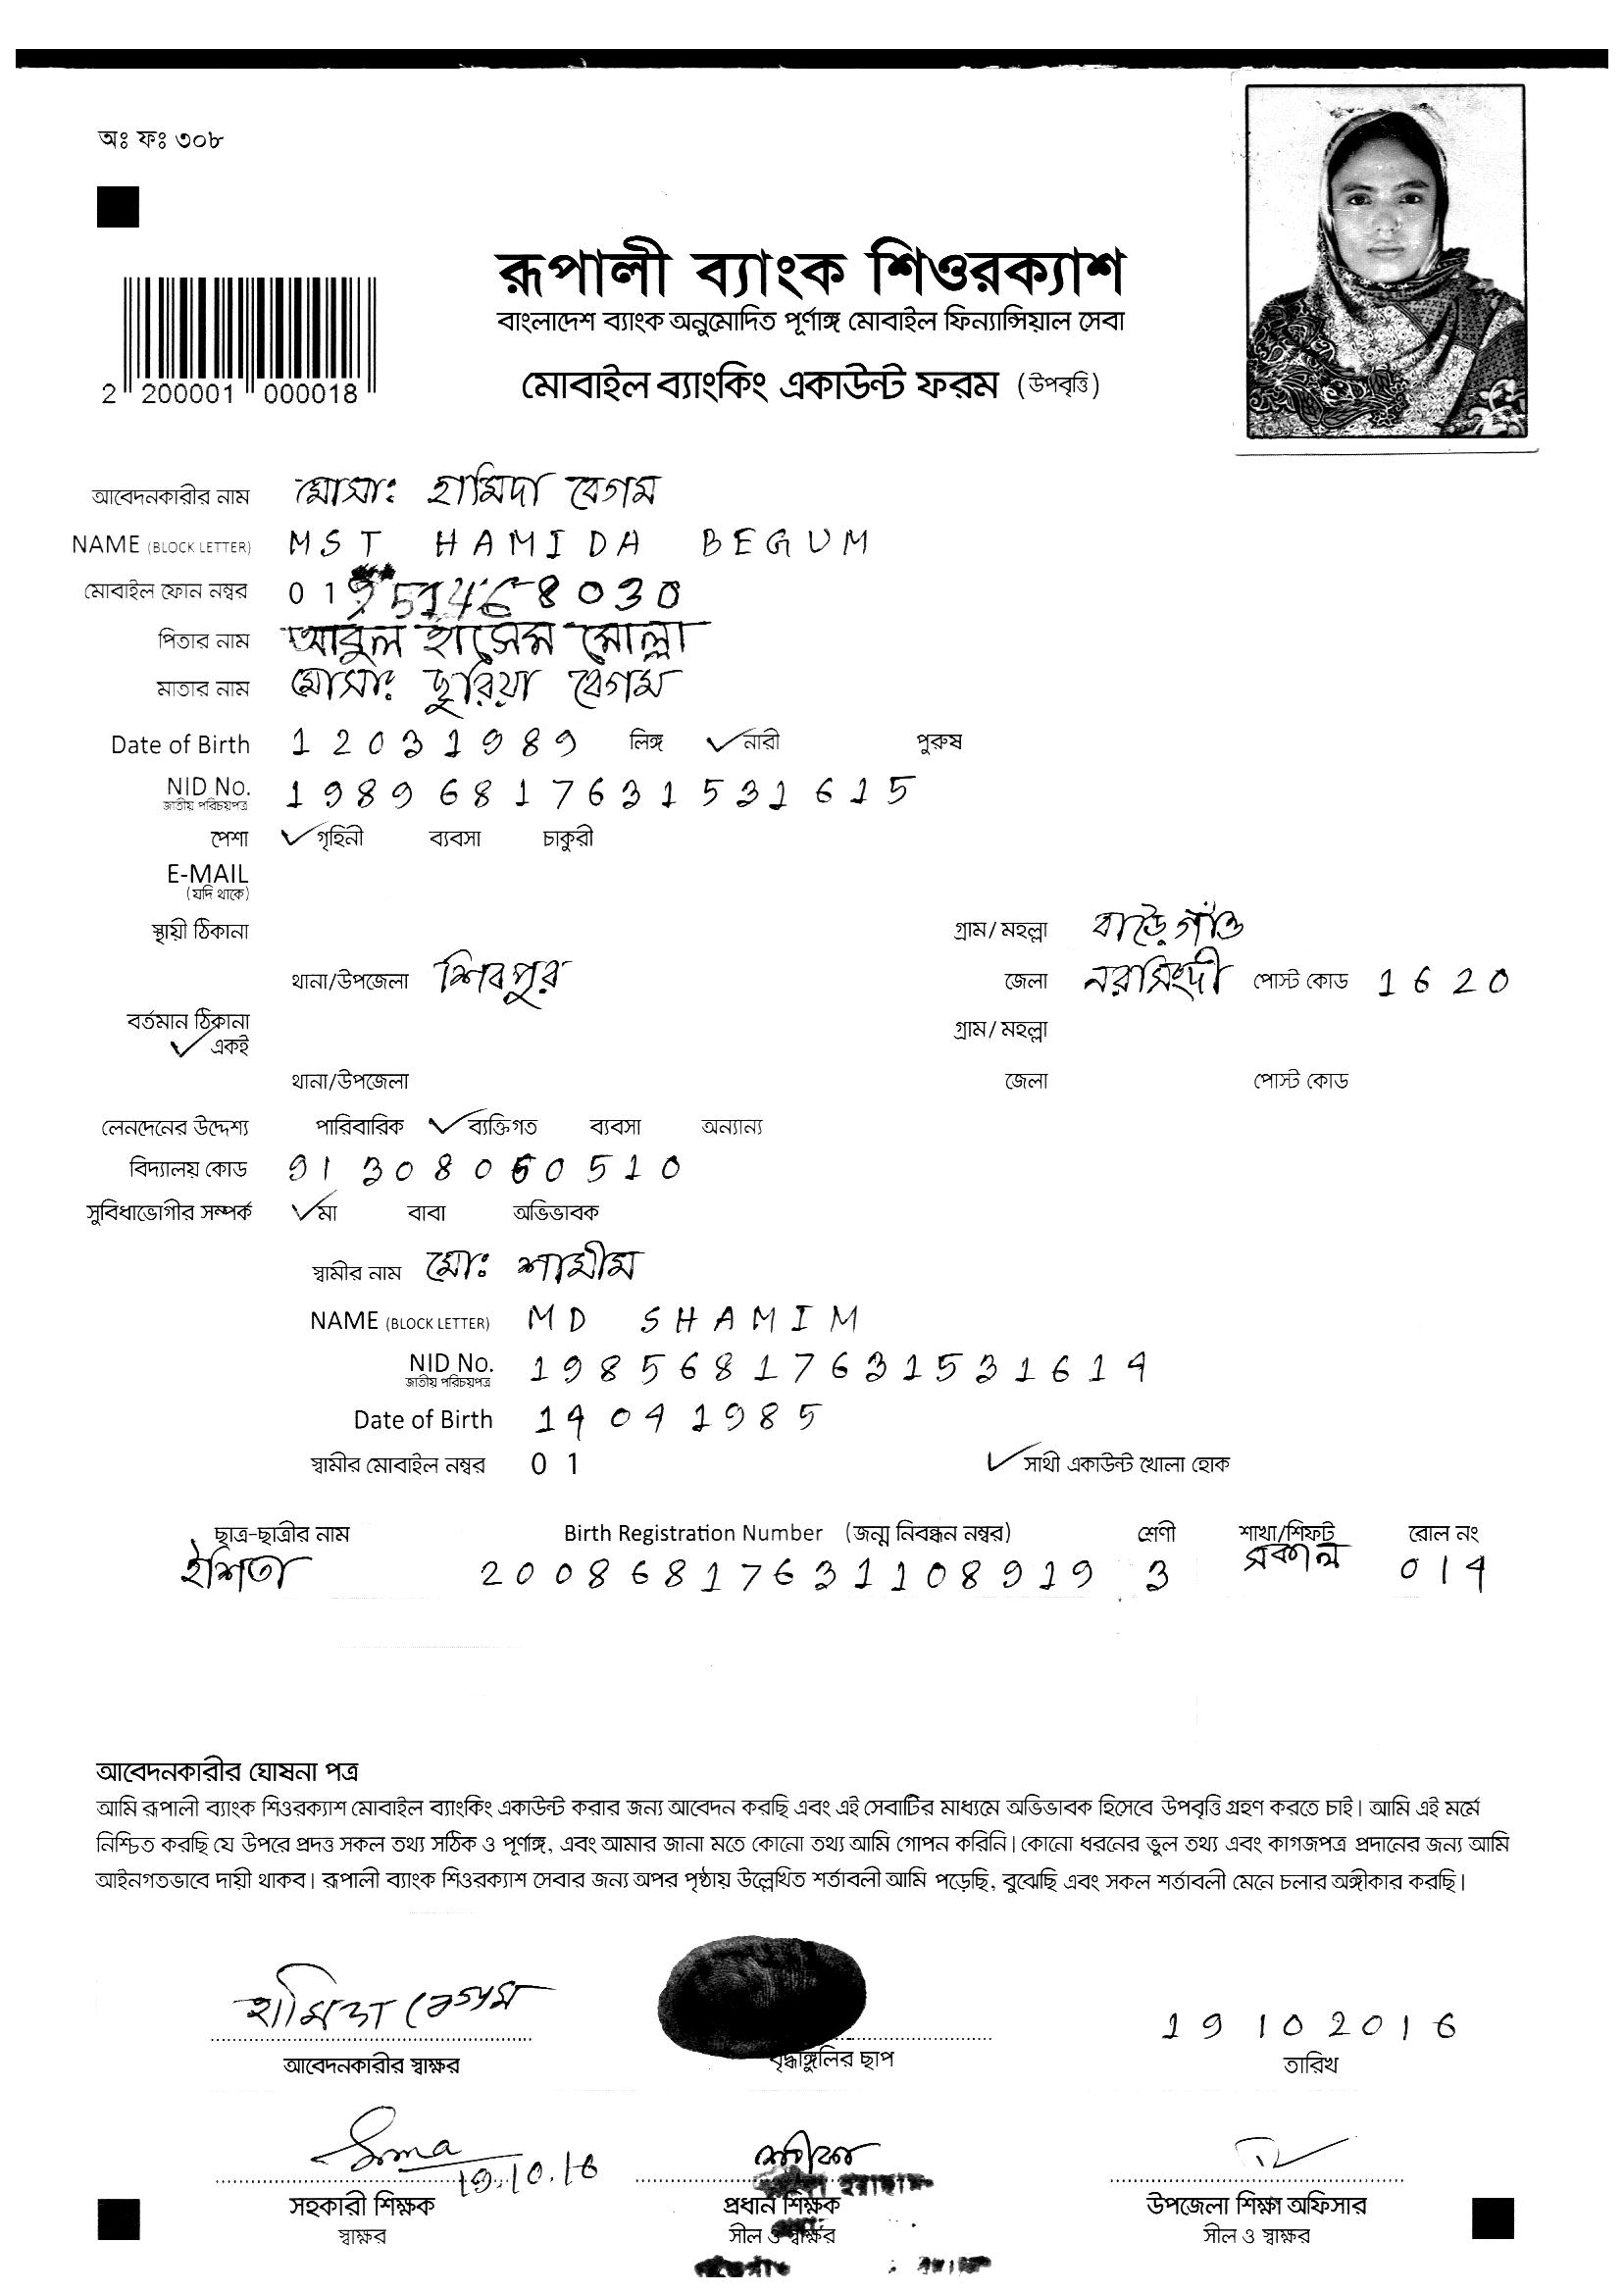 অঃ ফঃ ৩০৮
রূপালী ব্যাংক শিওরক্যাশ
বাংলাদেশ ব্যাংক অনুমোদিত পূর্ণাঙ্গ মোবাইল ফিন্যান্সিয়াল সেবা
মোবাইল ব্যাংকিং একাউন্ট ফরম (উপবৃত্তি)
2 200001 000018
আবেদনকারীর নাম মোসাঃ হামিদা বেগম
NAME (BLOCK LETTER) MST HAMIDA BEGUM
মোবাইল ফোন নম্বর 01 8030
পিতার নাম আবুল হাসেম মোল্লা
মাতার নাম মোসাঃ ছুরিয়া বেগম
Date of Birth 12031989 লিঙ্গ ✓নারী পুরুষ
NID No. 19896817631531615
জাতীয় পরিচয়পত্র
পেশা ✓গৃহিনী ব্যবসা চাকুরী
E-MAIL
(যদি থাকে)
স্থায়ী ঠিকানা গ্রাম/মহল্লা বাড়ৈগাঁও
থানা/উপজেলা শিবপুর জেলা নরসিংদী পোস্ট কোড 1620
বর্তমান ঠিকানা গ্রাম/মহল্লা
✓একই
থানা/উপজেলা জেলা পোস্ট কোড
লেনদেনের উদ্দেশ্য পারিবারিক ✓ব্যক্তিগত ব্যবসা অন্যান্য
বিদ্যালয় কোড 91308060510
সুবিধাভোগীর সম্পর্ক ✓মা বাবা অভিভাবক
স্বামীর নাম মোঃ শামীম
NAME (BLOCK LETTER) MD SHAMIM
NID No. 19856817631531614
জাতীয় পরিচয়পত্র
Date of Birth 14041985
স্বামীর মোবাইল নম্বর 01 ✓সাথী একাউন্ট খোলা হোক
ছাত্র-ছাত্রীর নাম Birth Registration Number (জন্ম নিবন্ধন নম্বর) শ্রেণী শাখা/শিফট রোল নং
ইশিতা 20086817631108919 3 সকাল 014
আবেদনকারীর ঘোষনা পত্র
আমি রূপালী ব্যাংক শিওরক্যাশ মোবাইল ব্যাংকিং একাউন্ট করার জন্য আবেদন করছি এবং এই সেবাটির মাধ্যমে অভিভাবক হিসেবে উপবৃত্তি গ্রহণ করতে চাই। আমি এই মর্মে
নিশ্চিত করছি যে উপরে প্রদত্ত সকল তথ্য সঠিক ও পূর্ণাঙ্গ, এবং আমার জানা মতে কোনো তথ্য আমি গোপন করিনি। কোনো ধরনের ভুল তথ্য এবং কাগজপত্র প্রদানের জন্য আমি
আইনগতভাবে দায়ী থাকব। রূপালী ব্যাংক শিওরক্যাশ সেবার জন্য অপর পৃষ্ঠায় উল্লেখিত শর্তাবলী আমি পড়েছি, বুঝেছি এবং সকল শর্তাবলী মেনে চলার অঙ্গীকার করছি।
হামিদা বেগম 19 10 2016
আবেদনকারীর স্বাক্ষর বৃদ্ধাঙ্গুলির ছাপ তারিখ
19.10.16
সহকারী শিক্ষক প্রধান শিক্ষক উপজেলা শিক্ষা অফিসার
স্বাক্ষর সীল ও স্বাক্ষর সীল ও স্বাক্ষর